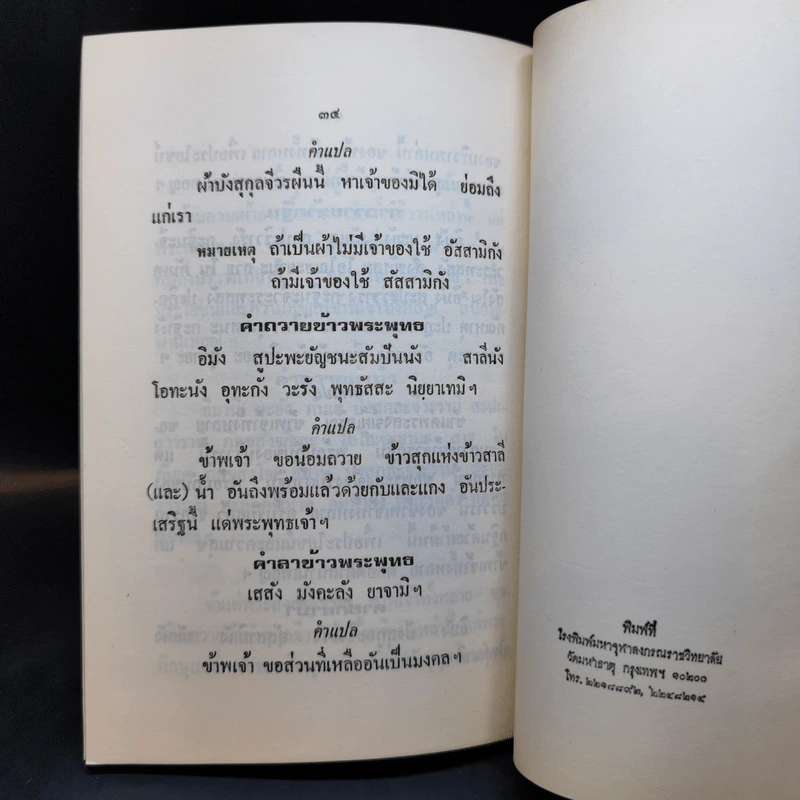 ๓๔
คำแปล
ผ้าบังสุกุลจีวรผืนนี้ หาเจ้าของมิได้ ย่อมถึง
แก่เรา
หมายเหตุ ถ้าเป็นผ้าไม่มีเจ้าของใช้ อัสสามิกัง
ถ้ามีเจ้าของใช้ สัสสามิกัง
คำถวายข้าวพระพุทธ
อิมัง สูปะพะยัญชนะสัมปันนัง สาลีนัง
โอทะนัง อุทะกัง วะรัง พุทธัสสะ นิยฺยาเทมิฯ
คำแปล
ข้าพเจ้า ขอน้อมถวาย ข้าวสุกแห่งข้าวสาลี
(และ) น้ำ อันถึงพร้อมแล้วด้วยกับและแกง อันประ-
เสริฐนี้ แด่พระพุทธเจ้าฯ
คำลาข้าวพระพุทธ
เสสัง มังคะลัง ยาจามิฯ
คำแปล
ข้าพเจ้า ขอส่วนที่เหลืออันเป็นมงคลฯ
พิมพ์ที่
โรงพิมพ์มหาจุฬาลงกรณราชวิทยาลัย
วัดมหาธาตุ กรุงเทพฯ ๑๐๒๐๐
โทร. ๒๒๑๘๘๙๒, ๒๒๔๘๒๑๔